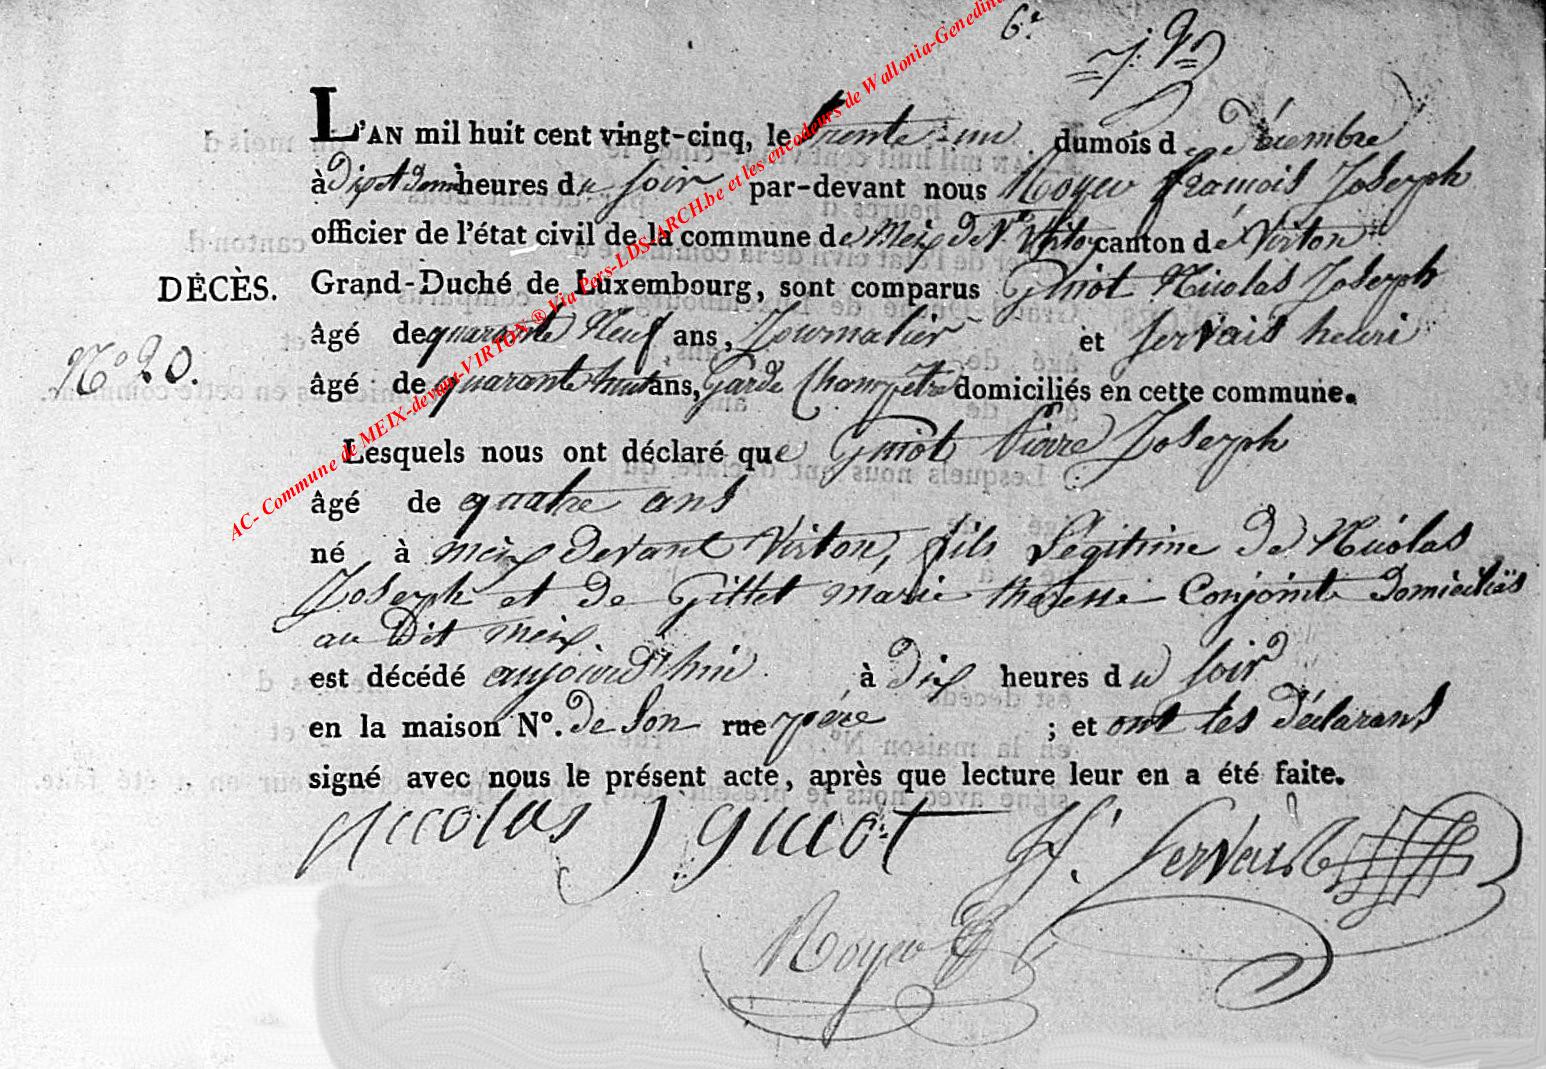 6e
L'AN mil huit cent vingt-cinq, le trente un du mois de Décembre
à Dix et Demi heures du soir par-devant nous Royer françois Joseph
officier de l'état civil de la commune de Meix Devt Virton canton de Virton
DÉCÈS. Grand-Duché de Luxembourg, sont comparus Guiot Nicolas Joseph
âgé de quarante Neuf ans, Journalier et Servais henri
No 20.
âgé de quarante huit ans, Garde Champetre domiciliés en cette commune.
Lesquels nous ont déclaré que Guiot Pierre Joseph
âgé de quatre ans
né à meix Devant Virton, fils Légitime de Nicolas
Joseph et de Gillet marie theresse Conjoints Domiciliés
au Dit meix
est décédé aujourd'hui à Dix heures du soir
en la maison No. de son rue père ; et ont les Déclarans
signé avec nous le présent acte, après que lecture leur en a été faite.
Nicolas J guiot H. Servais
Royer
AC- Commune de MEIX-devant-VIRTON ® Via Pers-LDS-ARCH.be et les encodeurs de Wallonia-Genedine